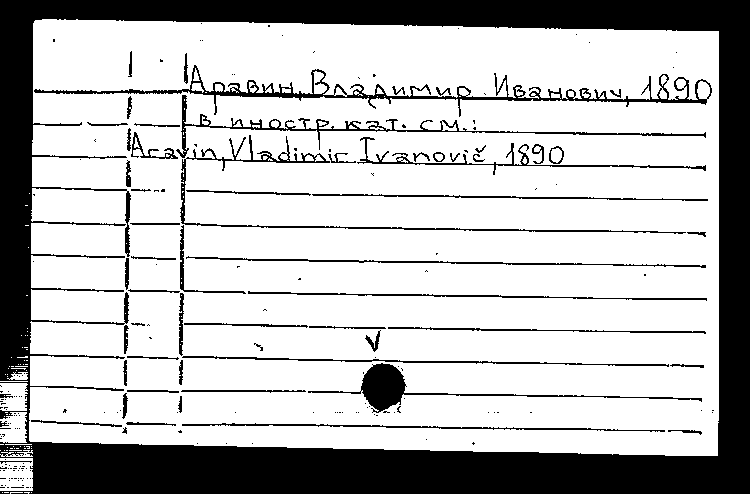 Аравин, Владимир Иванович, 1890
в иностр. кат. см.:
Aravin, Vladimir Ivanovič, 1890
V